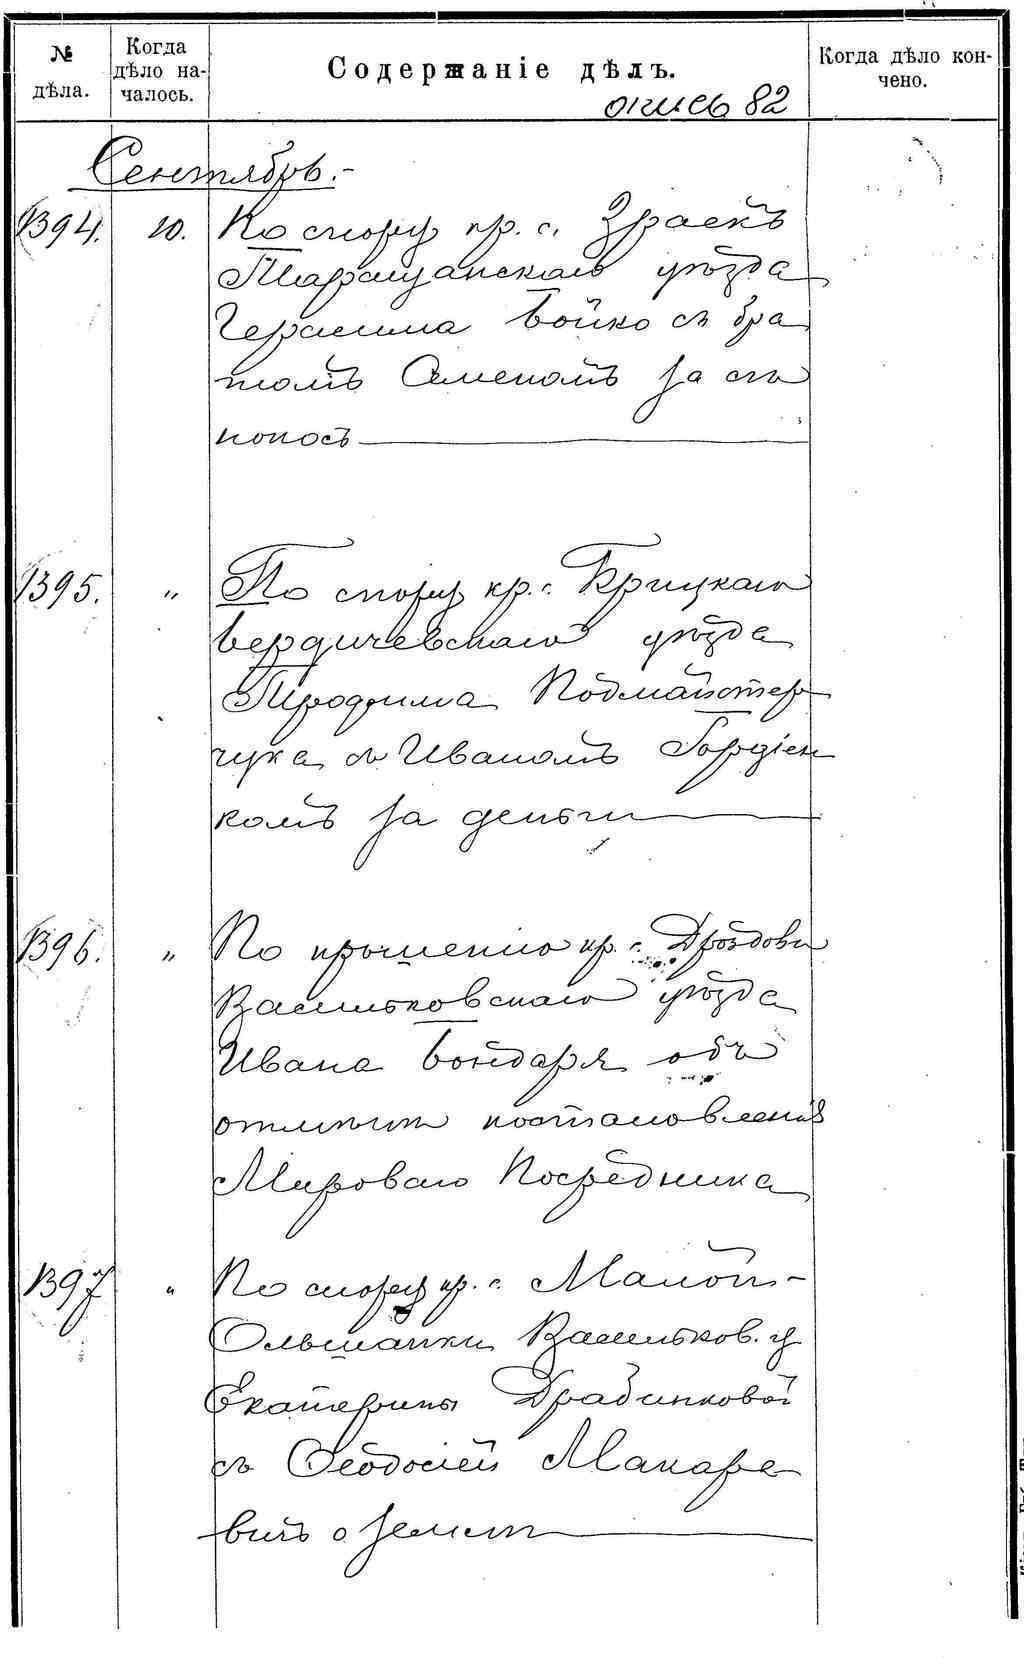 № дѣла.
Когда дѣло на-
чалось.
Содержаніе дѣлъ.
Когда дѣло кон-
чено.
опись 82
Сентябрь.-
1394. 10. По спору кр. с.
Таращанскаго уѣзда
Герасима Бойко съ бра
томъ Семеномъ за сѣ
нокосъ
1395. " По спору кр. с. Брицкаго
Бердичевскаго уѣзда
Трофима Подмайстер
чука съ Иваномъ Гордіен
комъ за деньги
1396. " По прошенію кр. с. Дроздовки
Васильковскаго уѣзда
Ивана Бондаря объ
отмѣнѣ постановленія
Мироваго Посредника
1397 " По спору кр. с. Малой-
Ольшанки Васильков. у
Екатерины Драбинковой
съ Ѳеодосіей Макаре
вичъ о землѣ